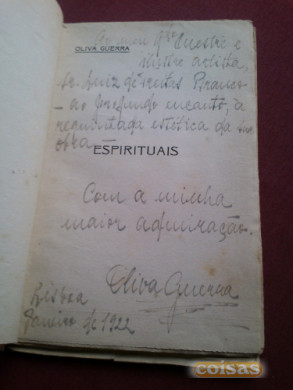 Ao meu Mestre e
OLIVA GUERRA
ilustre artista,
Sr. Luiz de Freitas Branco
- ao profundo encanto, à
requintada estética da sua
obra -
ESPIRITUAIS
Com a minha
maior admiração.
Oliva Guerra
Lisboa
Janeiro de 1922
coisas